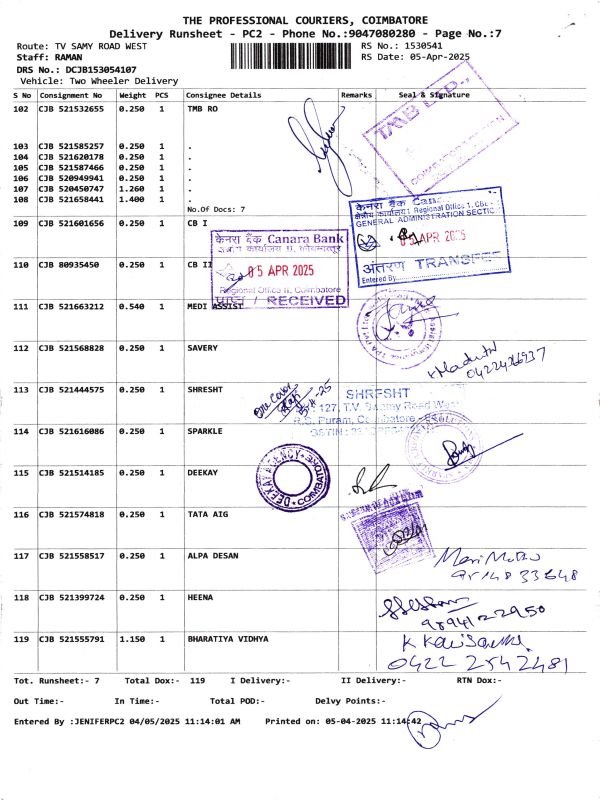 THE PROFESSIONAL COURIERS, COIMBATORE
Delivery Runsheet - PC2 - Phone No.:9047080280 - Page No.:7
Route: TV SAMY ROAD WEST
RS No.: 1530541
Staff: RAMAN
RS Date: 05-Apr-2025
DRS No.: DCJB153054107
Vehicle: Two Wheeler Delivery
S No Consignment No Weight PCS Consignee Details Remarks Seal & Signature
102 CJB 521532655 0.250 1 TMB RO
TMB LTD.,
103 CJB 521585257 0.250 1 .
104 CJB 521620178 0.250 1 .
105 CJB 521587466 0.250 1 .
106 CJB 520949941 0.250 1 .
107 CJB 520450747 1.260 1 .
108 CJB 521658441 1.400 1 .
No.Of Docs: 7
केनरा बैंक Canara
Regional Office 1, CBE
GENERAL ADMINISTRATION SECTION
05 APR 2025
अंतरण TRANSFER
Entered By
109 CJB 521601656 0.250 1 CB I
केनरा बैंक Canara Bank
05 APR 2025
Regional Office II, Coimbatore
प्राप्त / RECEIVED
110 CJB 80935450 0.250 1 CB II
111 CJB 521663212 0.540 1 MEDI ASSIST
112 CJB 521568828 0.250 1 SAVERY
113 CJB 521444575 0.250 1 SHRESHT
SHRESHT
127, T.V. Swamy Road West
R.S. Puram, Coimbatore
114 CJB 521616086 0.250 1 SPARKLE
115 CJB 521514185 0.250 1 DEEKAY
DEEKAY AGENCY COIMBATORE
116 CJB 521574818 0.250 1 TATA AIG
117 CJB 521558517 0.250 1 ALPA DESAN
118 CJB 521399724 0.250 1 HEENA
9894122950
119 CJB 521555791 1.150 1 BHARATIYA VIDHYA
0422 2542481
Tot. Runsheet:- 7 Total Dox:- 119 I Delivery:- II Delivery:- RTN Dox:-
Out Time:- In Time:- Total POD:- Delvy Points:-
Entered By :JENIFERPC2 04/05/2025 11:14:01 AM Printed on: 05-04-2025 11:14:42